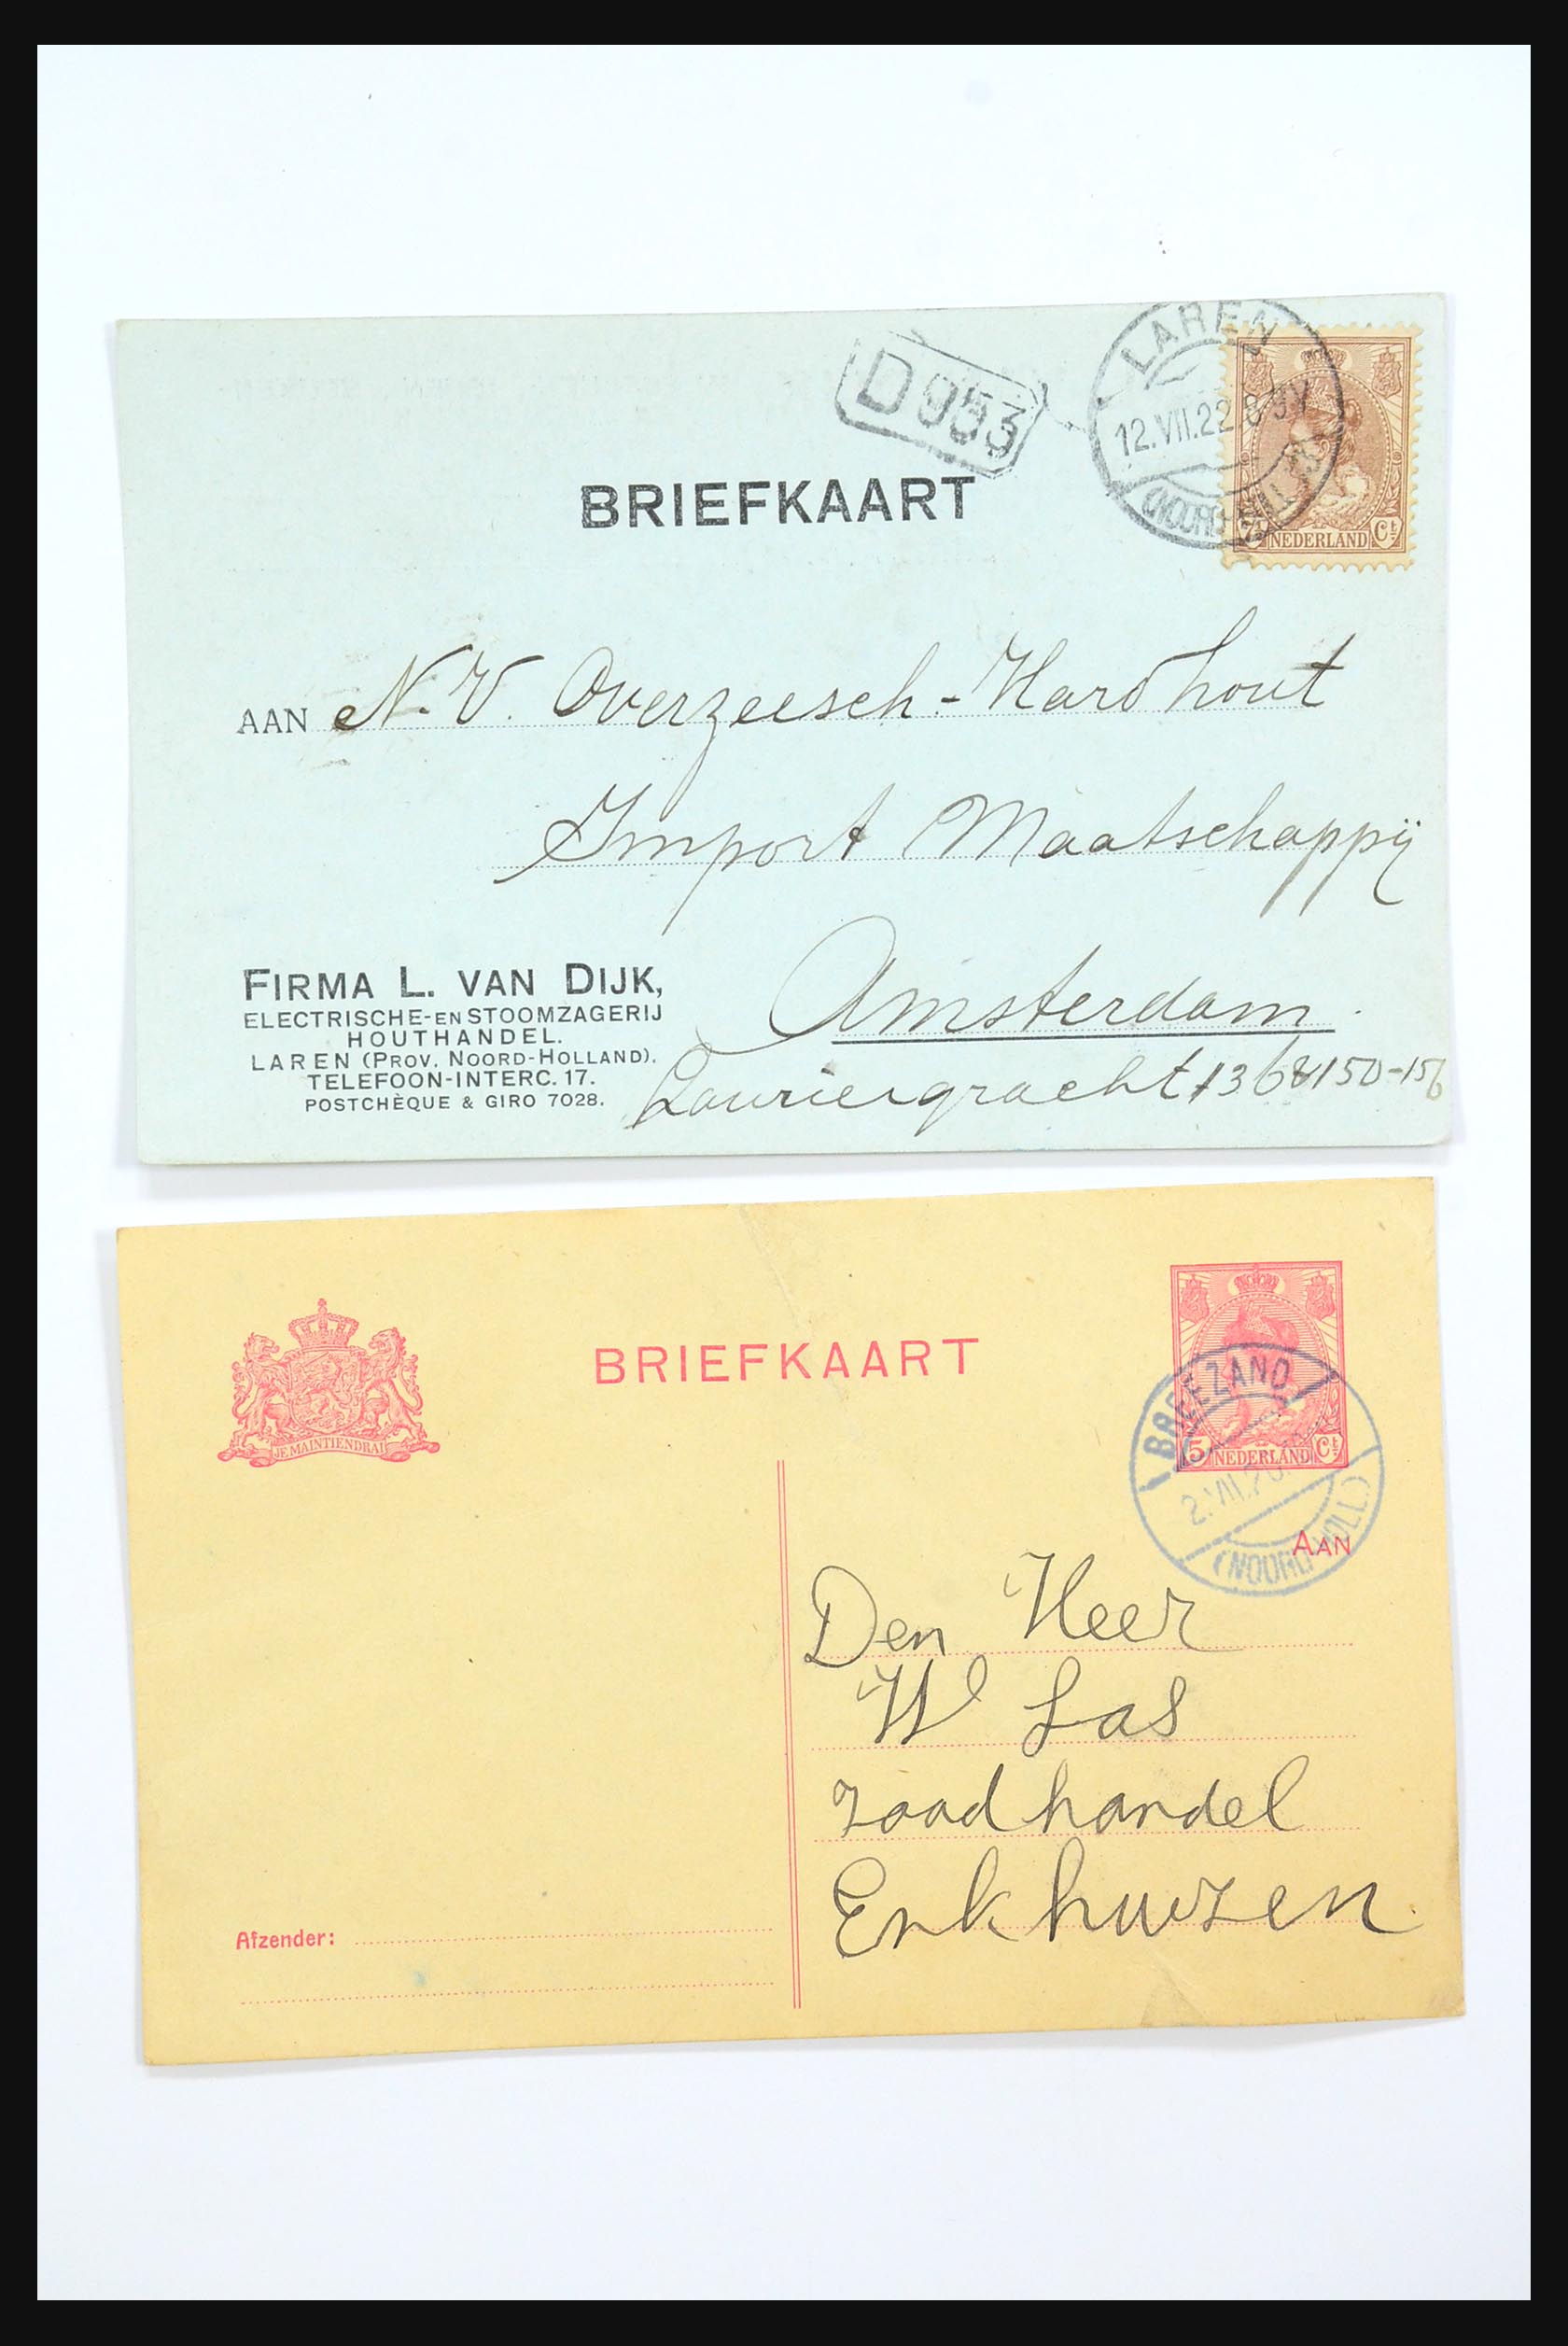 LAREN
D 953
12.VII.22 8-9V
BRIEFKAART
7½ NEDERLAND Ct
AAN N.V. Overzeesch-Hardhout
Import Maatschappij
FIRMA L. VAN DIJK,
ELECTRISCHE- EN STOOMZAGERIJ
HOUTHANDEL.
LAREN (PROV. NOORD-HOLLAND).
TELEFOON-INTERC. 17.
POSTCHÈQUE & GIRO 7028.
Amsterdam
Lauriergracht 150-156
BRIEFKAART
JE MAINTIENDRAI
BREEZAND
5 NEDERLAND Ct
2.VII.20
(NOORD HOLL.)
AAN
Den Heer
W Las
zaadhandel
Enkhuizen
Afzender: